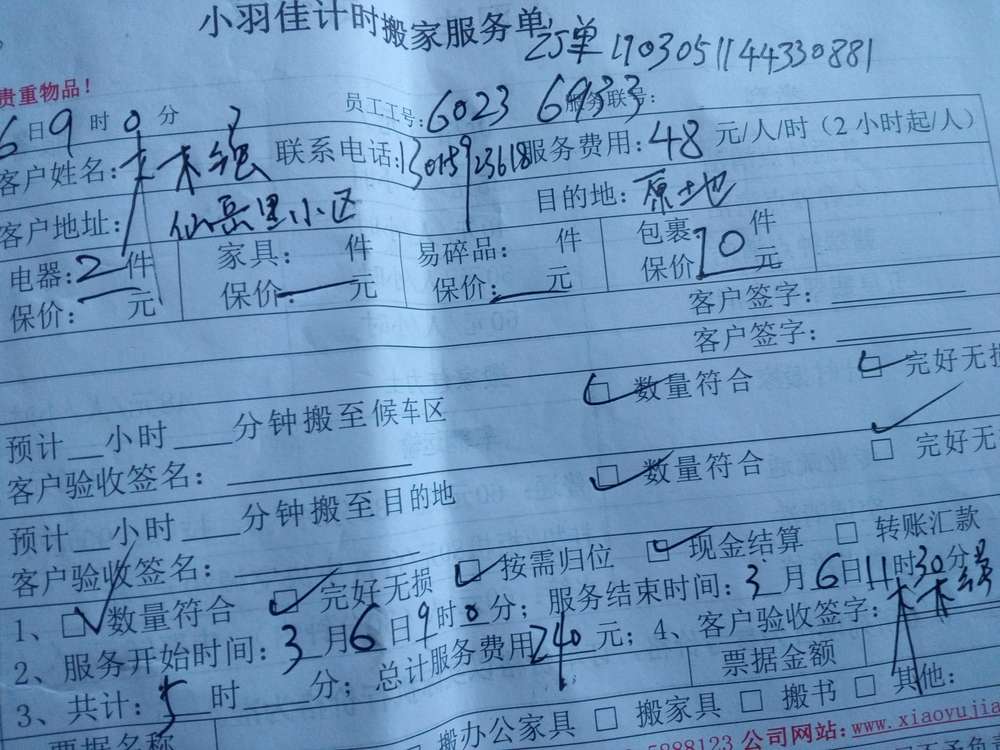 小羽佳计时搬家服务单
订单1903051144330881
贵重物品！
6日9时0分 员工工号：6023 6933 服务联号：
客户姓名： 联系电话：13015923618 服务费用：48元/人/时（2小时起/人）
客户地址：仙岳里小区 目的地：原地
电器：2件 家具： 件 易碎品： 件 包裹：10件
保价： 元 保价：一元 保价：一元 保价 元
客户签字：
客户签字：
数量符合 完好无损
预计__小时___分钟搬至候车区
客户验收签名： 数量符合 完好无
预计__小时___分钟搬至目的地
客户验收签名：
1、数量符合 完好无损 按需归位 现金结算 转账汇款
2、服务开始时间：3月6日9时0分；服务结束时间：3月6日11时30分
3、共计：5时___分；总计服务费用240元；4、客户验收签字：
票据名称 票据金额
搬办公家具 搬家具 搬书 其他：
5888123 公司网站：www.xiaoyujia